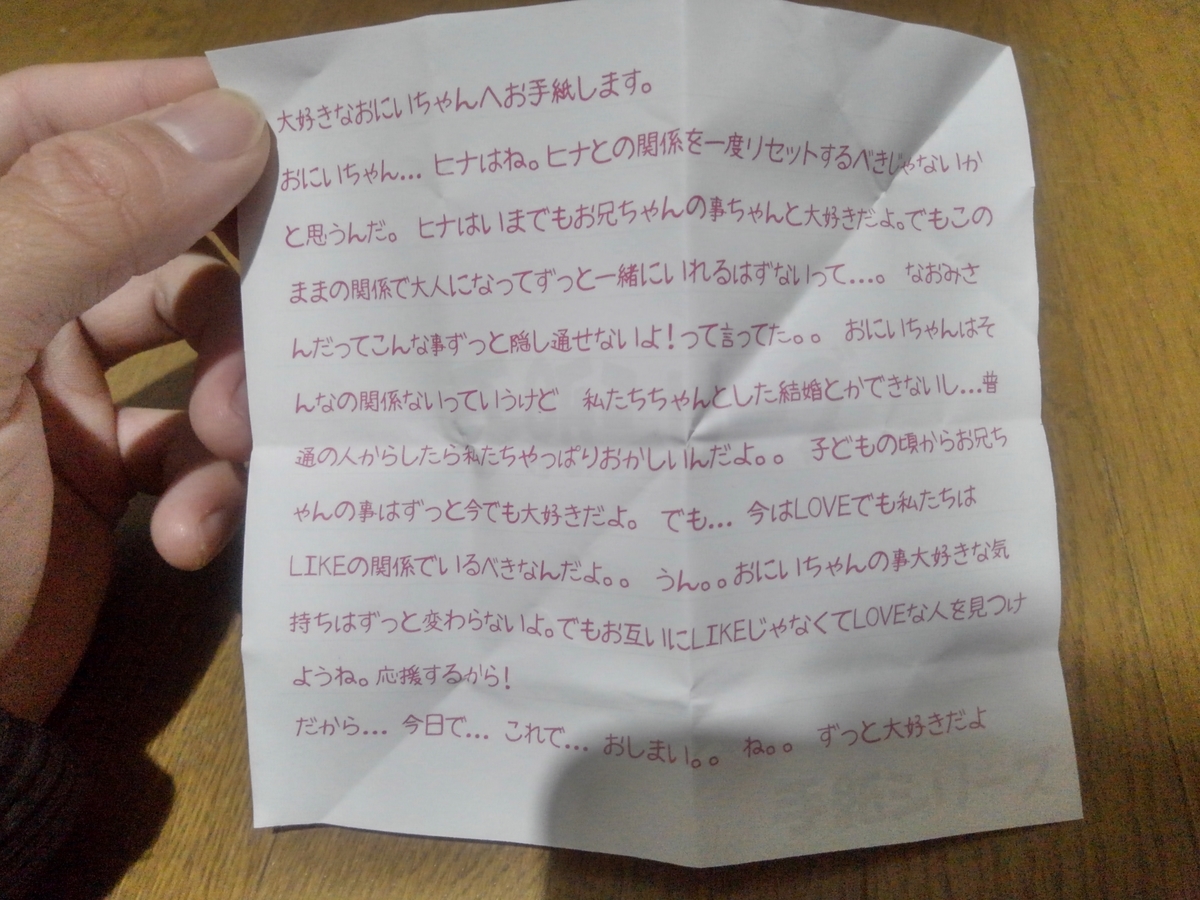 大好きなおにいちゃんへお手紙します。
おにいちゃん… ヒナはね。ヒナとの関係を一度リセットするべきじゃないか
と思うんだ。 ヒナはいまでもお兄ちゃんの事ちゃんと大好きだよ。でもこの
ままの関係で大人になってずっと一緒にいれるはずないって…。 なおみさ
んだってこんな事ずっと隠し通せないよ!って言ってた。。 おにいちゃんはそ
んなの関係ないっていうけど 私たちちゃんとした結婚とかできないし…普
通の人からしたら私たちやっぱりおかしいんだよ。。 子どもの頃からお兄ち
ゃんの事はずっと今でも大好きだよ。 でも… 今はLOVEでも私たちは
LIKEの関係でいるべきなんだよ。。 うん。。おにいちゃんの事大好きな気
持ちはずっと変わらないよ。でもお互いにLIKEじゃなくてLOVEな人を見つけ
ようね。応援するから!
だから… 今日で… これで… おしまい。。 ね。。 ずっと大好きだよ